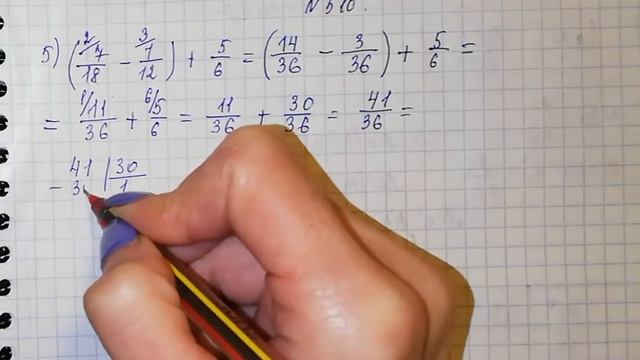 N 510.
5) (²/7/18 - ³/1/12) + 5/6 = (14/36 - 3/36) + 5/6 =
= ¹/11/36 + ⁶/5/6 = 11/36 + 30/36 = 41/36 =
41 | 30
- 3 | 1